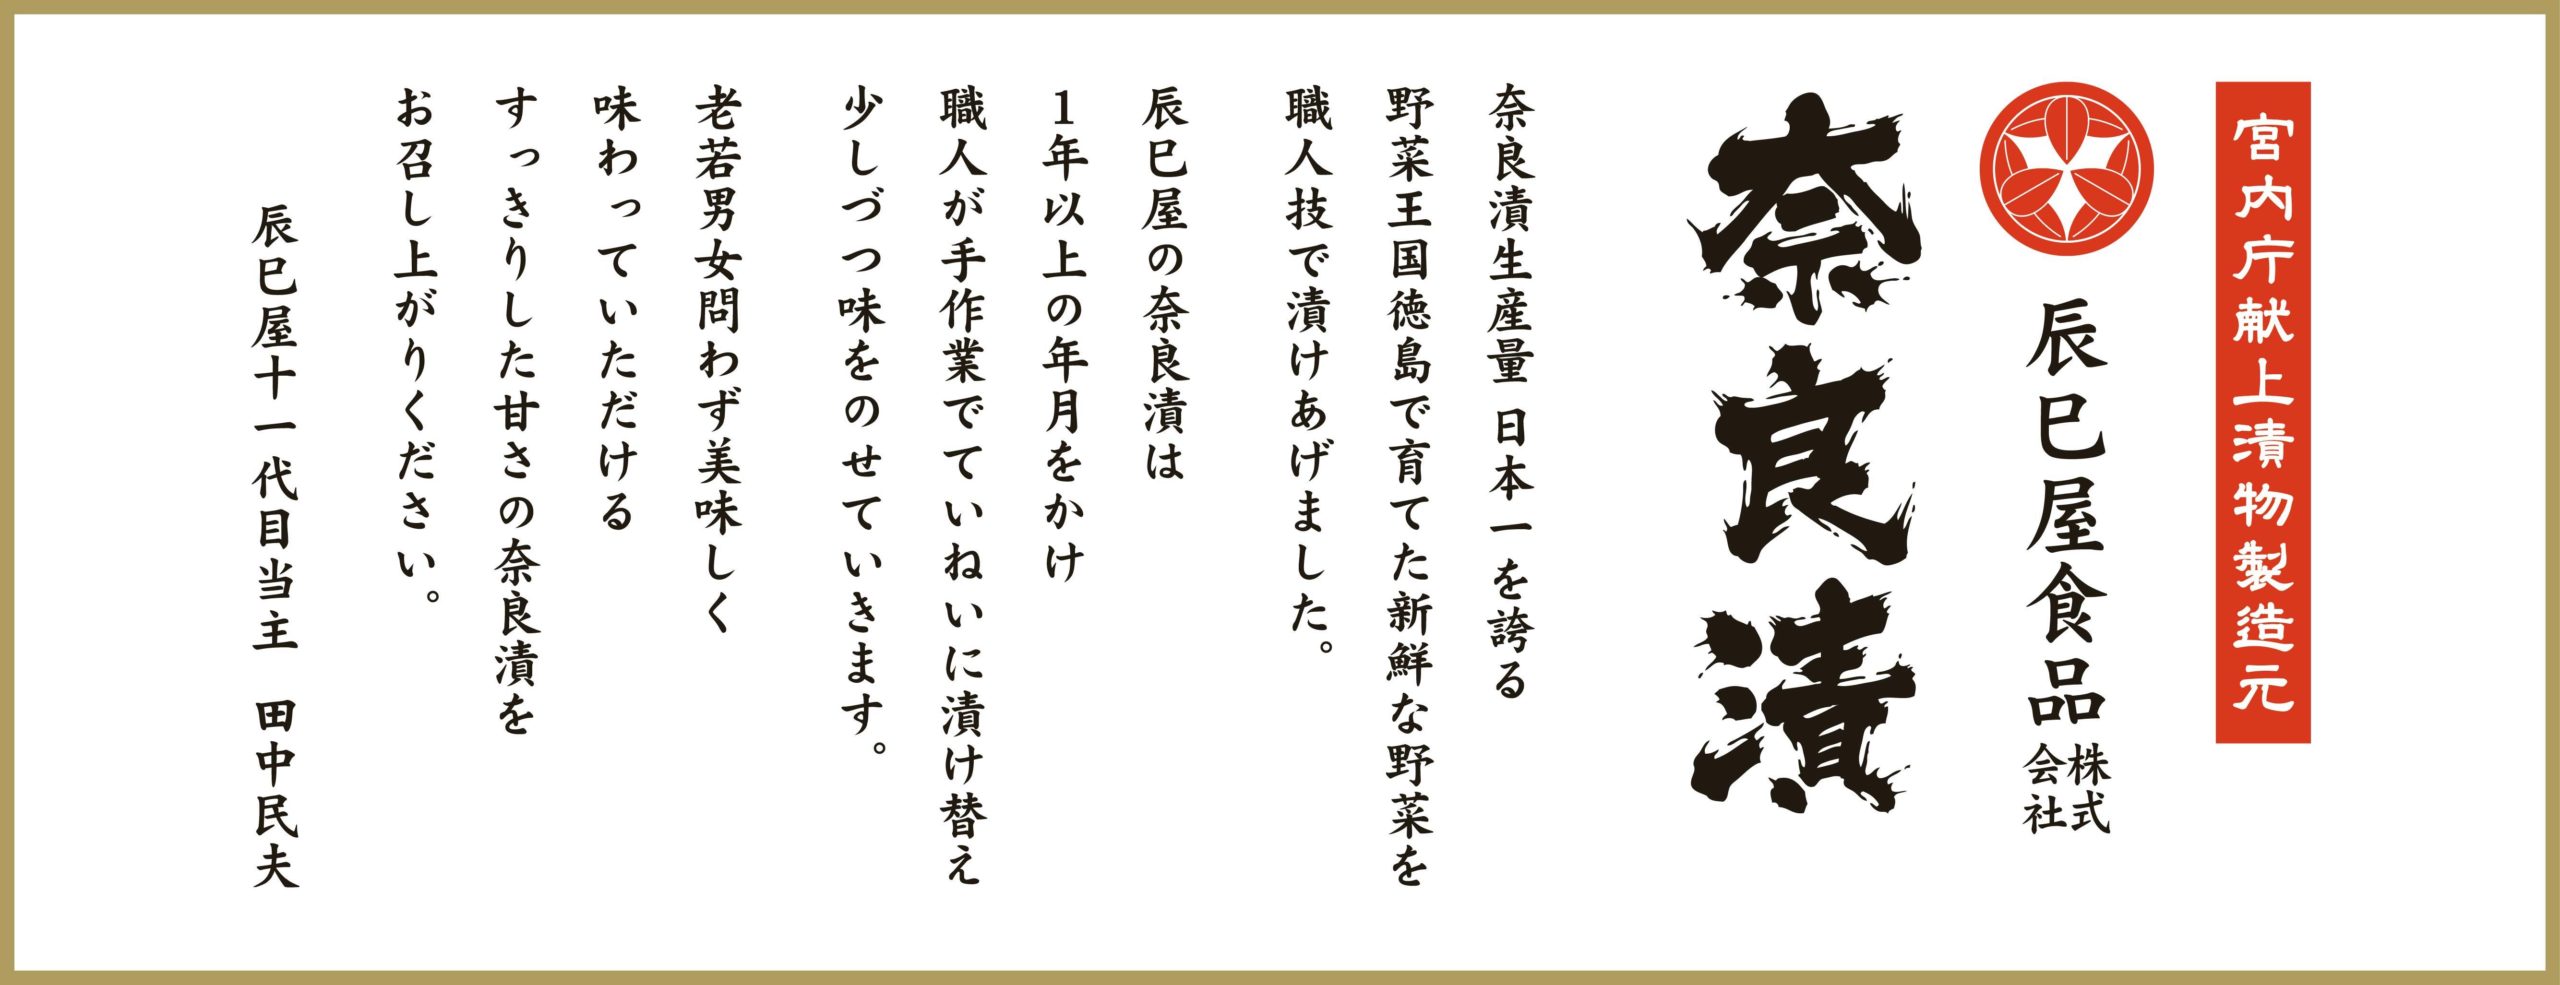 宮内庁献上漬物製造元
辰巳屋食品株式会社
奈良漬
奈良漬生産量 日本一を誇る
野菜王国徳島で育てた新鮮な野菜を
職人技で漬けあげました。
辰巳屋の奈良漬は
1年以上の年月をかけ
職人が手作業でていねいに漬け替え
少しづつ味をのせていきます。
老若男女問わず美味しく
味わっていただける
すっきりした甘さの奈良漬を
お召し上がりください。
辰巳屋十一代目当主　田中民夫